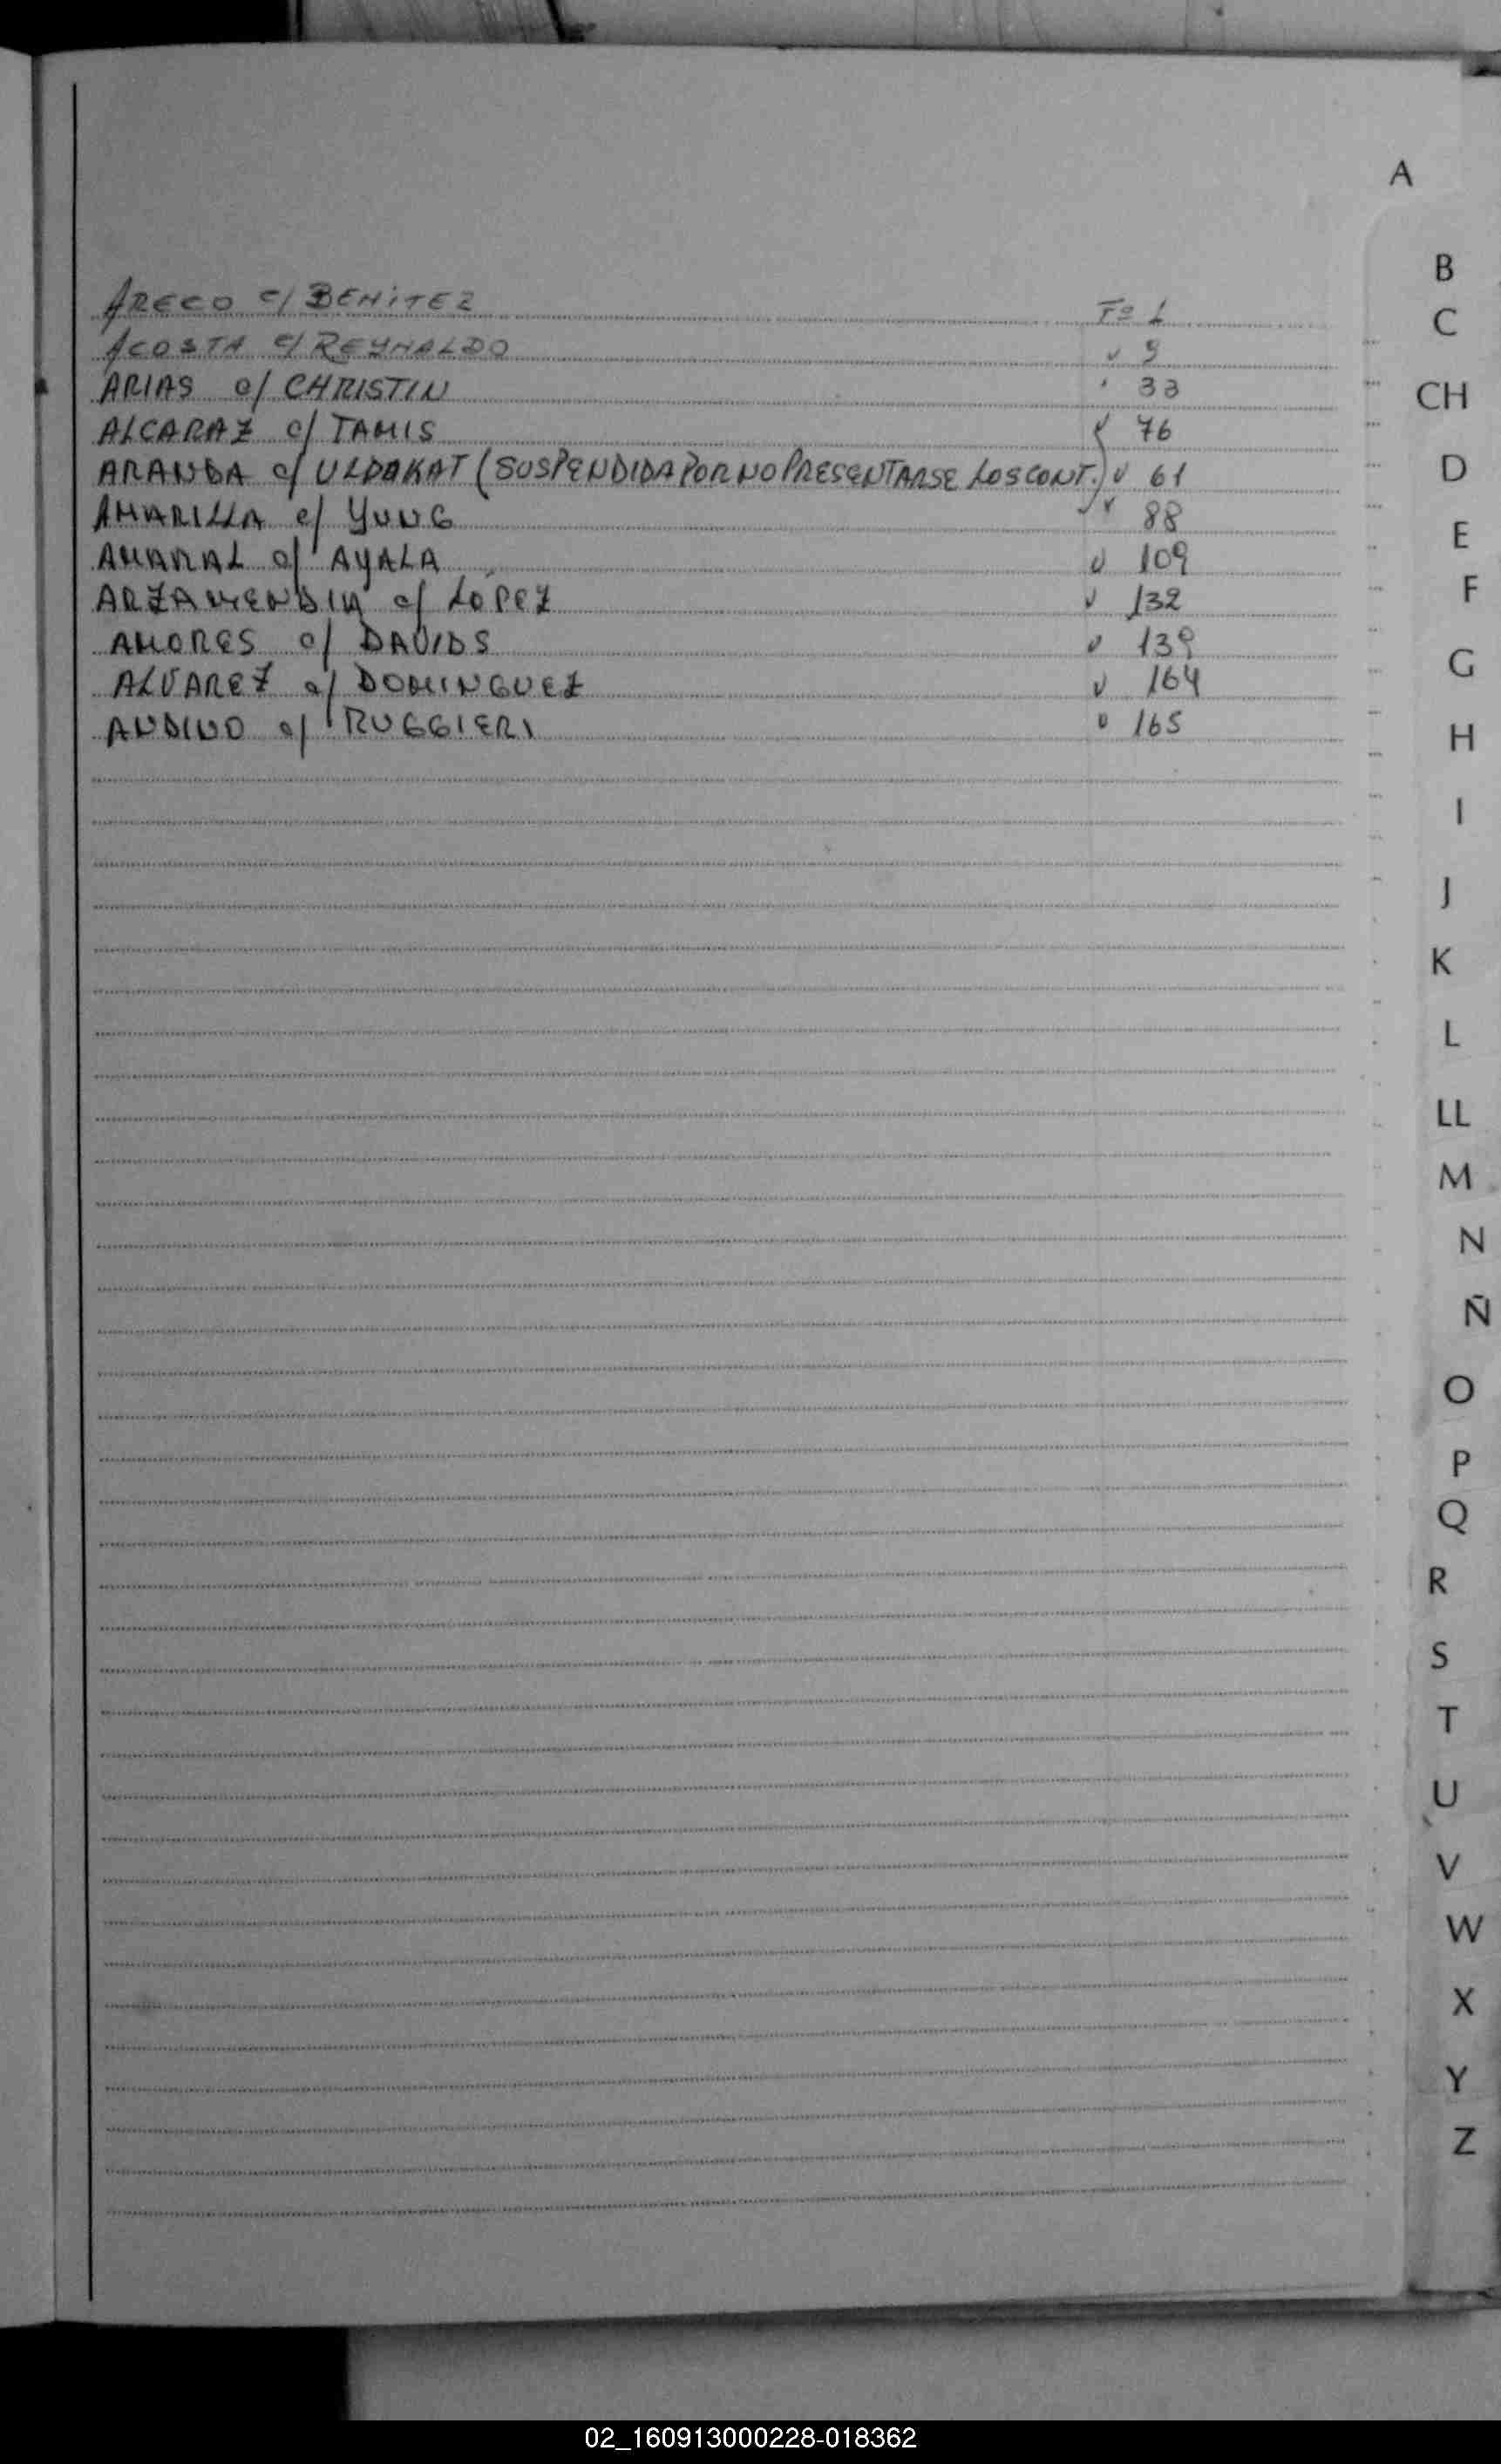 A
ARECO c/ BENITEZ Fº 1
ACOSTA c/ REYNALDO 9
ARIAS c/ CHRISTIN 33
ALCARAZ c/ TAMIS 76
ARANDA c/ (SUSPENDIDA POR NO PRESENTARSE LOS CONT.) 61
AMARILLA c/ YUNG 88
AMARAL c/ AYALA 109
ARZAMENDIA c/ LÓPEZ 132
AMORES c/ DAVIDS 139
ALVAREZ c/ DOMINGUEZ 164
ANDINO c/ RUGGIERI 165
B
C
CH
D
E
F
G
H
I
J
K
L
LL
M
N
Ñ
O
P
Q
R
S
T
U
V
W
X
Y
Z
02_160913000228-018362